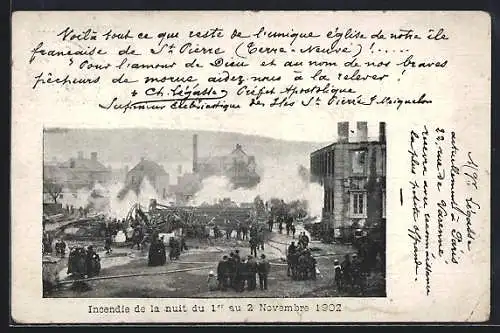 Voilà tout ce que reste de l'unique église de notre île
française de St Pierre (Terre-Neuve)!.....
"Pour l'amour de Dieu et au nom de nos braves
pêcheurs de morue aidez nous à la relever!
+ Ch. Légasse, Préfet Apostolique
Supérieur Ecclésiastique des Iles St Pierre & Miquelon
Mgr Légasse
actuellement à Paris
22, rue de Varenne,
recevra avec reconnaissance
la plus petite offrande.
Incendie de la nuit du 1er au 2 Novembre 1902